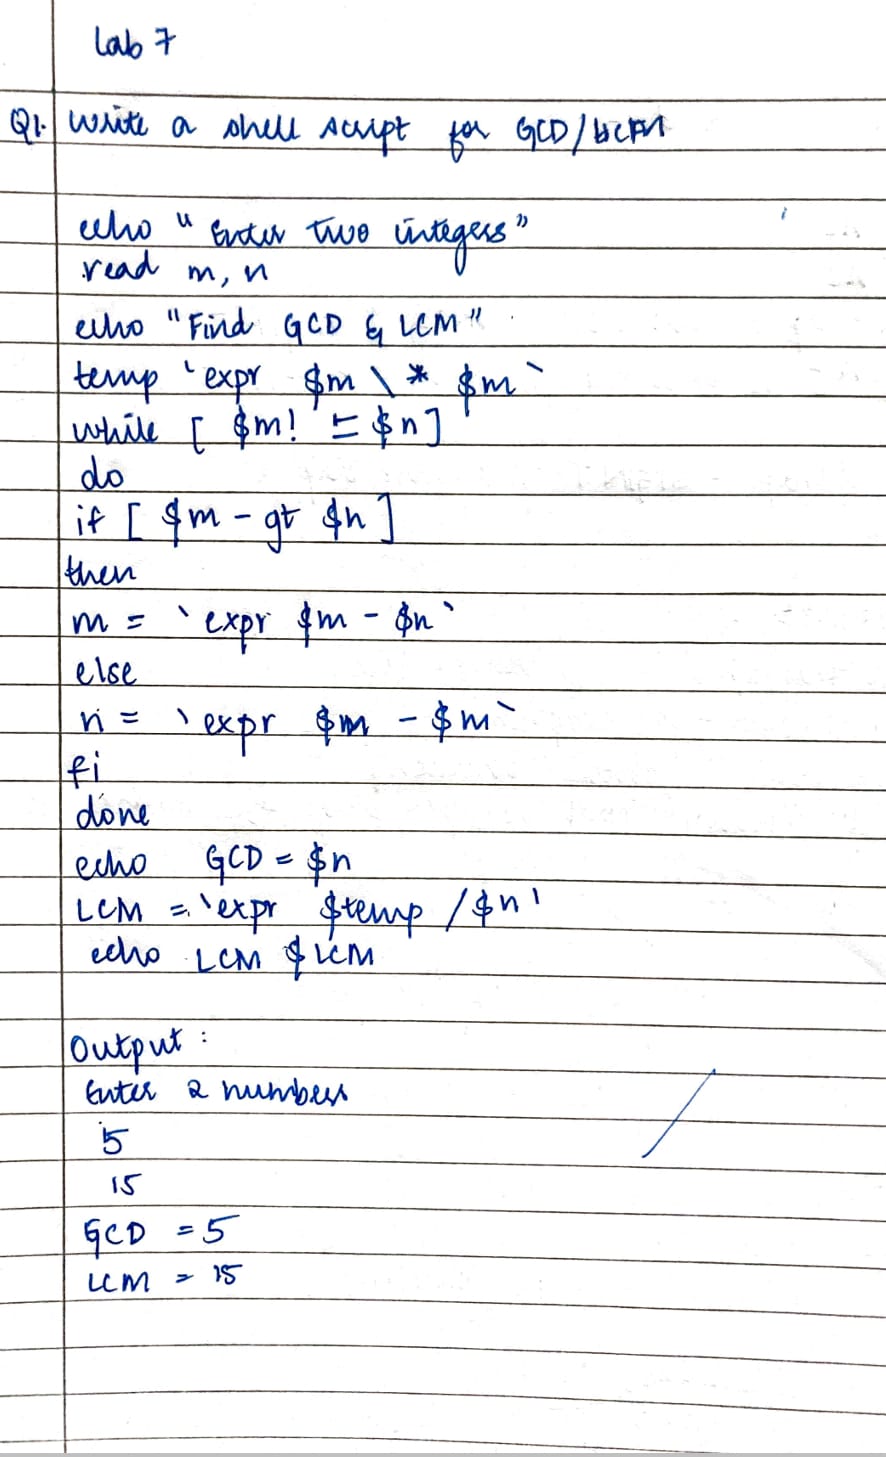 Lab 7
Q1. Write a shell script for GCD/LCM
echo "Enter two integers"
read m, n
echo "Find GCD & LCM"
temp `expr $m \* $m`
while [ $m! = $n]
do
if [ $m - gt $n ]
then
m = `expr $m - $n`
else
n = `expr $m - $m`
fi
done
echo GCD = $n
LCM = `expr $temp / $n'
echo LCM $LCM
Output :
Enter 2 numbers
5
15
GCD = 5
LCM = 15